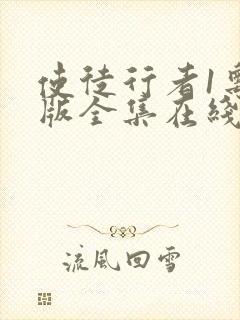 使徒行者1
版全集在线
流风回雪